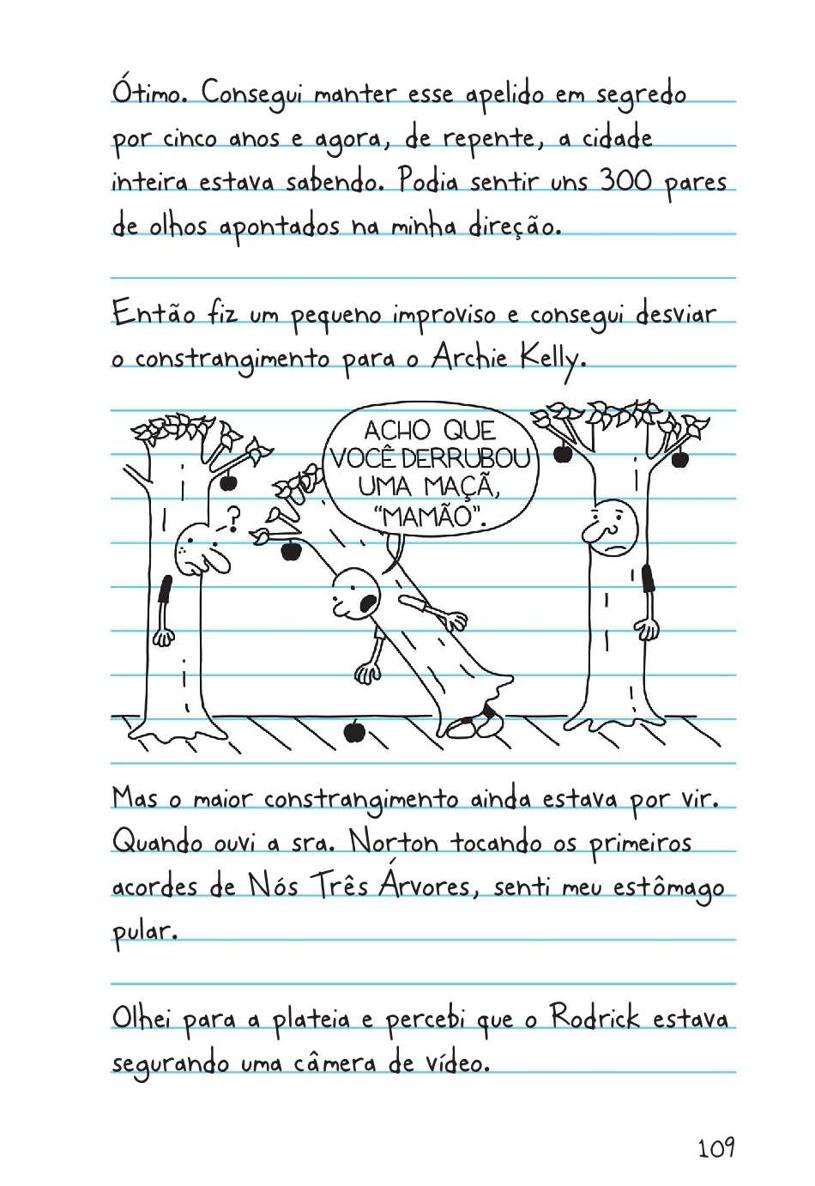 Ótimo. Consegui manter esse apelido em segredo
por cinco anos e agora, de repente, a cidade
inteira estava sabendo. Podia sentir uns 300 pares
de olhos apontados na minha direção.
Então fiz um pequeno improviso e consegui desviar
o constrangimento para o Archie Kelly.
ACHO QUE
VOCÊ DERRUBOU
UMA MAÇÃ,
"MAMÃO".
?
Mas o maior constrangimento ainda estava por vir.
Quando ouvi a sra. Norton tocando os primeiros
acordes de Nós Três Árvores, senti meu estômago
pular.
Olhei para a plateia e percebi que o Rodrick estava
segurando uma câmera de vídeo.
109